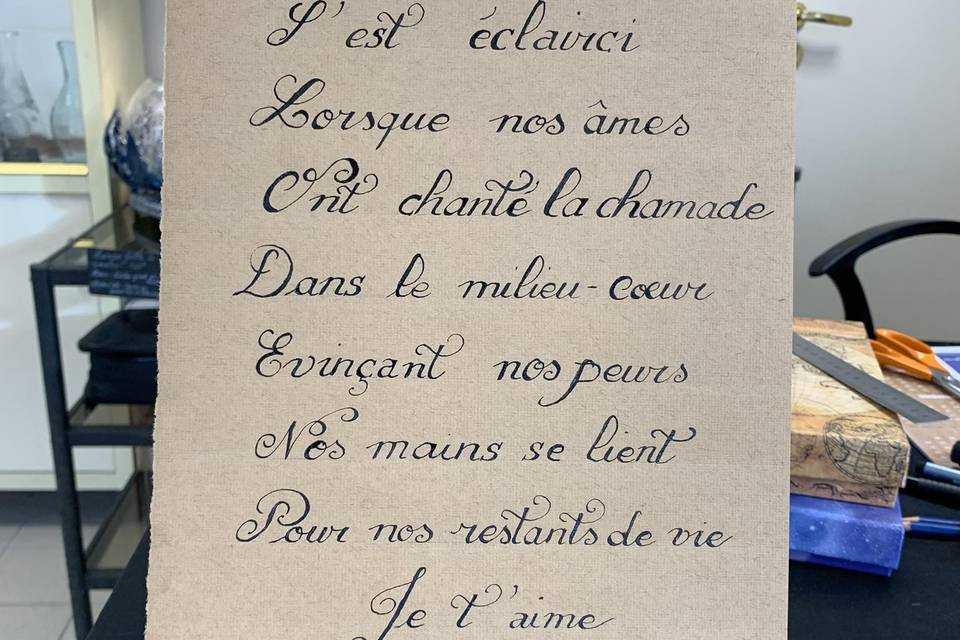 S'est éclairci
Lorsque nos âmes
Ont chanté la chamade
Dans le milieu-cœur
Evinçant nos peurs
Nos mains se lient
Pour nos restants de vie
Je t'aime